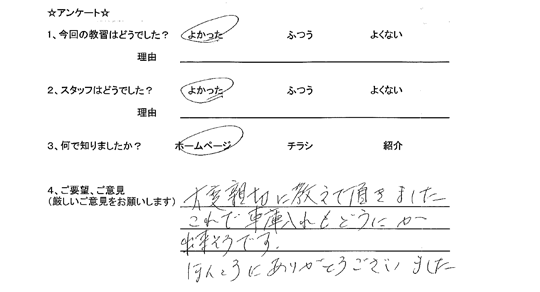 ☆アンケート☆
1、今回の教習はどうでした? よかった ふつう よくない
理由
2、スタッフはどうでした? よかった ふつう よくない
理由
3、何で知りましたか? ホームページ チラシ 紹介
4、ご要望、ご意見
(厳しいご意見をお願いします)
大変親切に教えて頂きました
これで車庫入れもどうにか
出来そうです。
ほんとうにありがとうございました